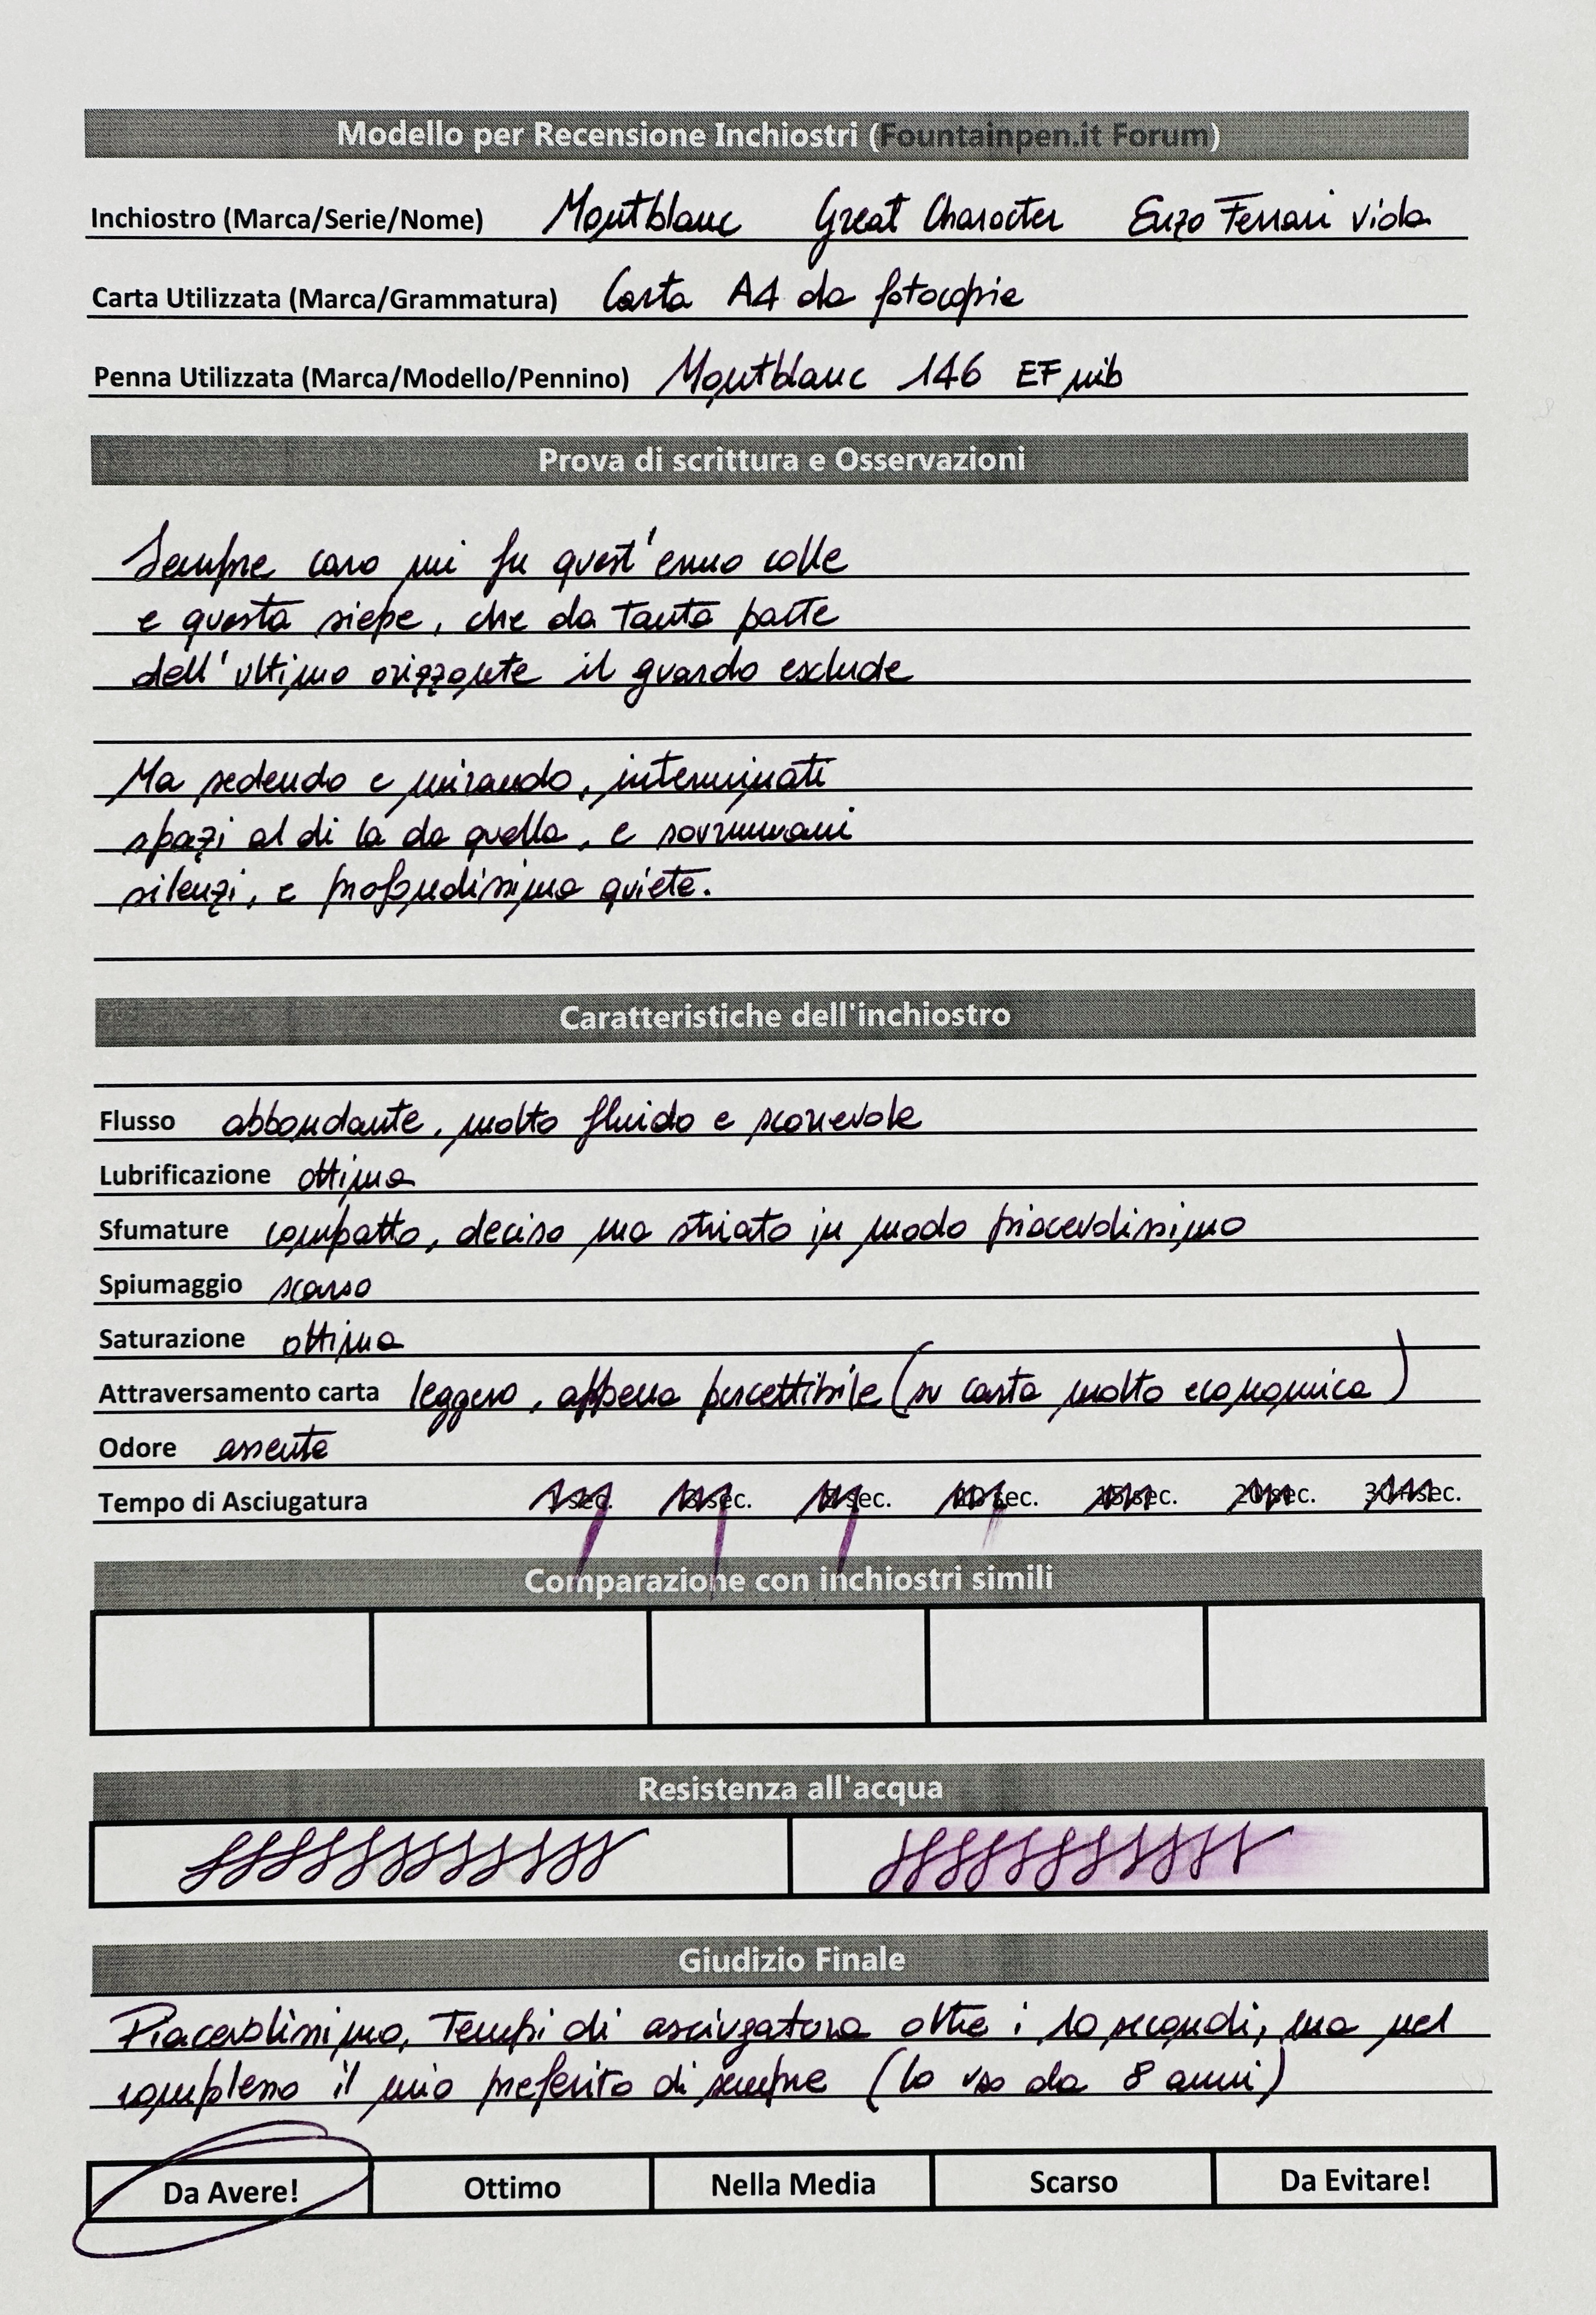 Modello per Recensione Inchiostri (Fountainpen.it Forum)
Inchiostro (Marca/Serie/Nome) Montblanc Great Character Enzo Ferrari viola
Carta Utilizzata (Marca/Grammatura) Carta A4 da fotocopie
Penna Utilizzata (Marca/Modello/Pennino) Montblanc 146 EF nib
Prova di scrittura e Osservazioni
Sempre caro mi fu quest'ermo colle
e questa siepe, che da tanta parte
dell'ultimo orizzonte il guardo esclude
Ma sedendo e mirando, interminati
spazi al di là da quella, e sovrumani
silenzi, e profondissima quiete.
Caratteristiche dell'inchiostro
Flusso abbondante, molto fluido e scorrevole
Lubrificazione ottima
Sfumature compatto, deciso ma striato in modo piacevolissimo
Spiumaggio scarso
Saturazione ottima
Attraversamento carta leggero, appena percettibile (su carta molto economica)
Odore assente
Tempo di Asciugatura 1 sec. sec. 5 sec. 10 sec. 15 sec. 20 sec. 30 sec.
Comparazione con inchiostri simili
Resistenza all'acqua
Giudizio Finale
Piacevolissimo. Tempi di asciugatura oltre i 10 secondi, ma nel
complesso il mio preferito di sempre (lo uso da 8 anni)
Da Avere! Ottimo Nella Media Scarso Da Evitare!